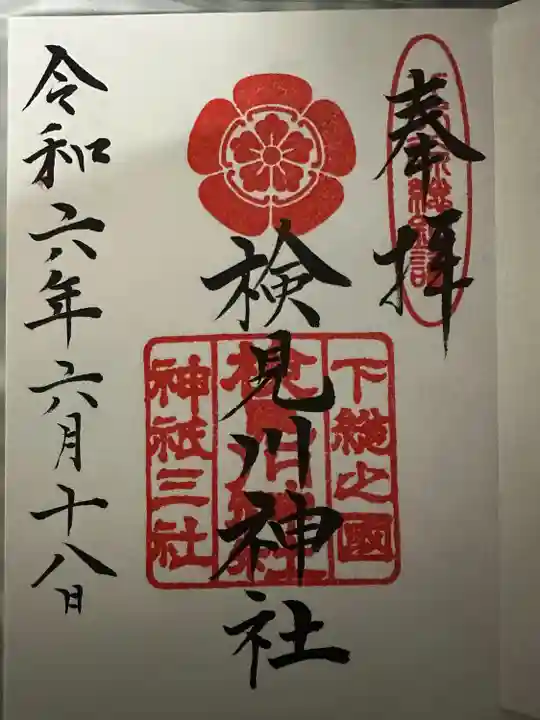 奉拝
検見川神社
下総之國
神祇三社
令和六年六月十八日